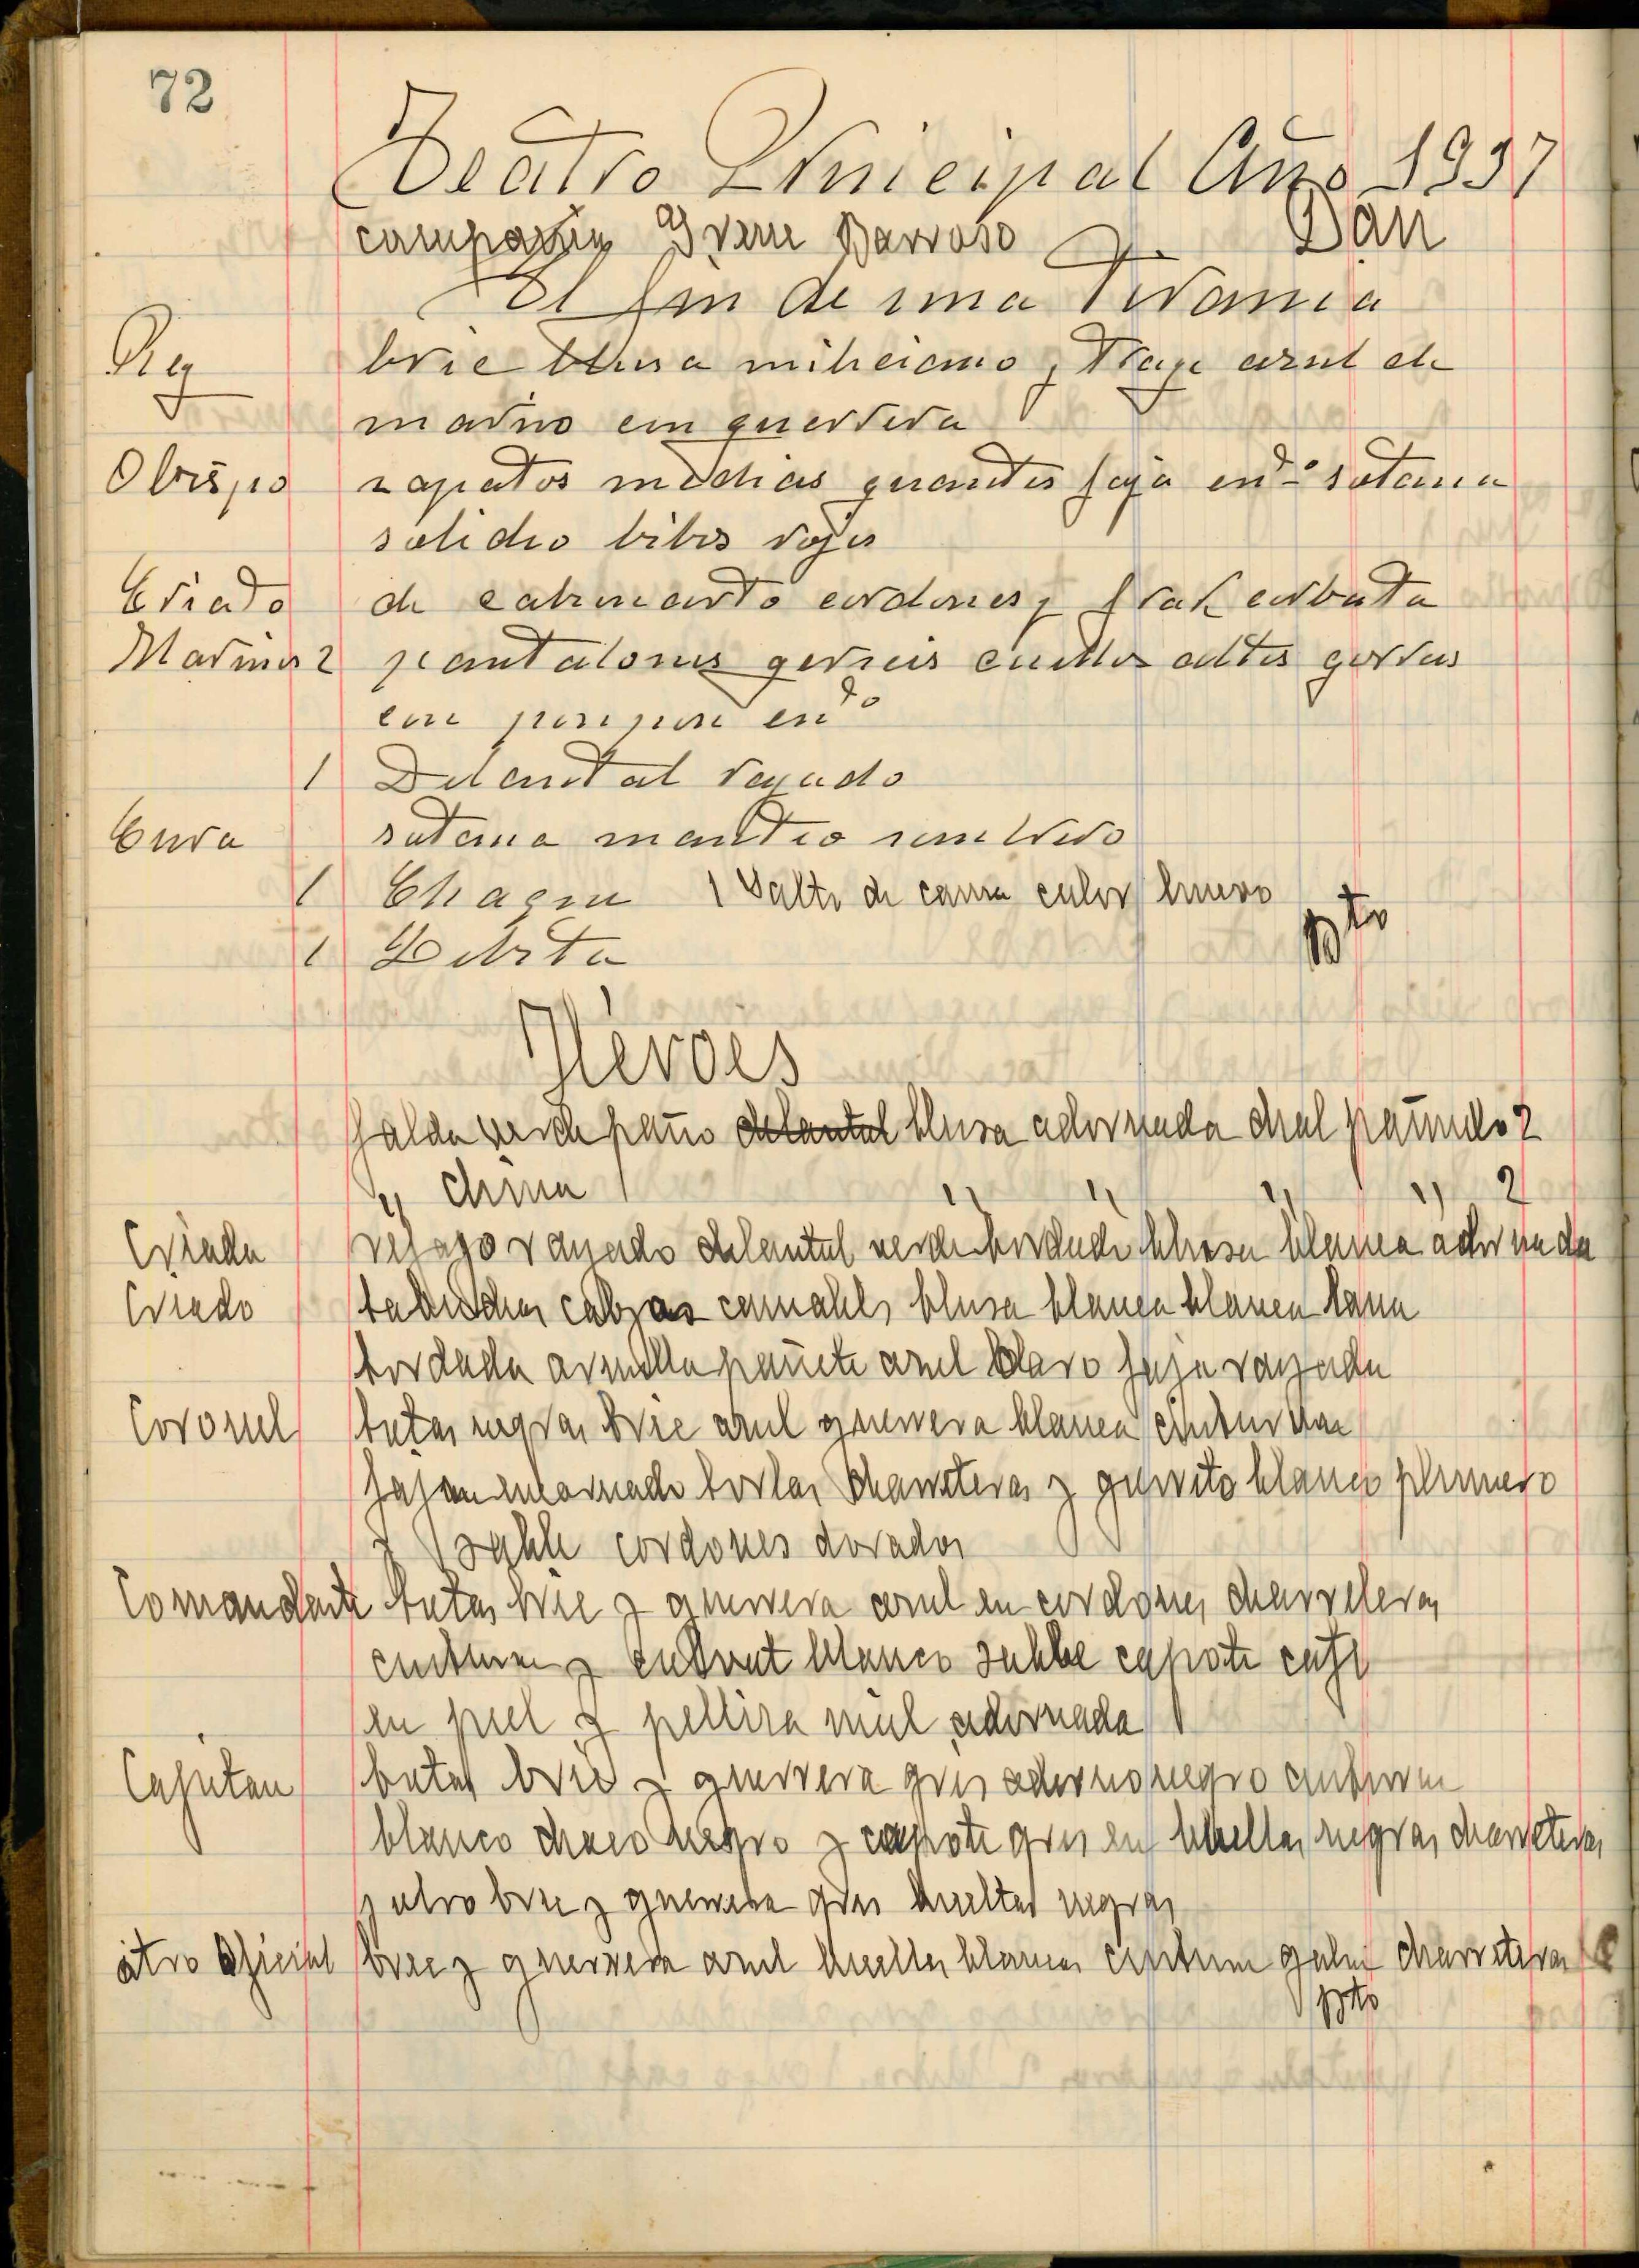 72
Teatro Principal Año 1937
compañia Irene Barroso Dan
El fin de una Tirania
Rey bric blusa miliciano y Traje azul de
marino con guerrera
Obispo zapatos medias guantes faja endº sotana
solideo rojo
Criado de calzon corto cordones y frak corbata
Marinos 2 pantalones cuellos altos gorras
con pompon endº
1 Delantal rayado
Cura sotana manteo sombrero
1 Chaque 1 Salto de cama color hueso
1 Lebita pto
Héroes
falda verde paño delantal blusa adornada chal pañuelo 2
" china " " " " 2
Criada refajo rayado delantal verde bordado blusa blanca adornada
Criado babuchas calzas blusa blanca blanca lana
bordada armilla pañete azul claro faja rayada
Coronel botas negras bric azul guerrera blanca cinturon
fajin encarnado borlas charreteras y gorrito blanco plumero
y sable cordones dorados
Comandante botas bric y guerrera azul con cordones charreteras
cinturon y blanco sable capote cafe
con piel y pelliza azul adornada
Capitan botas bric y guerrera gris adorno negro cinturon
blanco chaco negro y capote gris con vueltas negras charreteras
y otro bric y guerrera gris vueltas negras
otro Oficial bric y guerrera azul vueltas blancas cinturon galon charreteras
pto